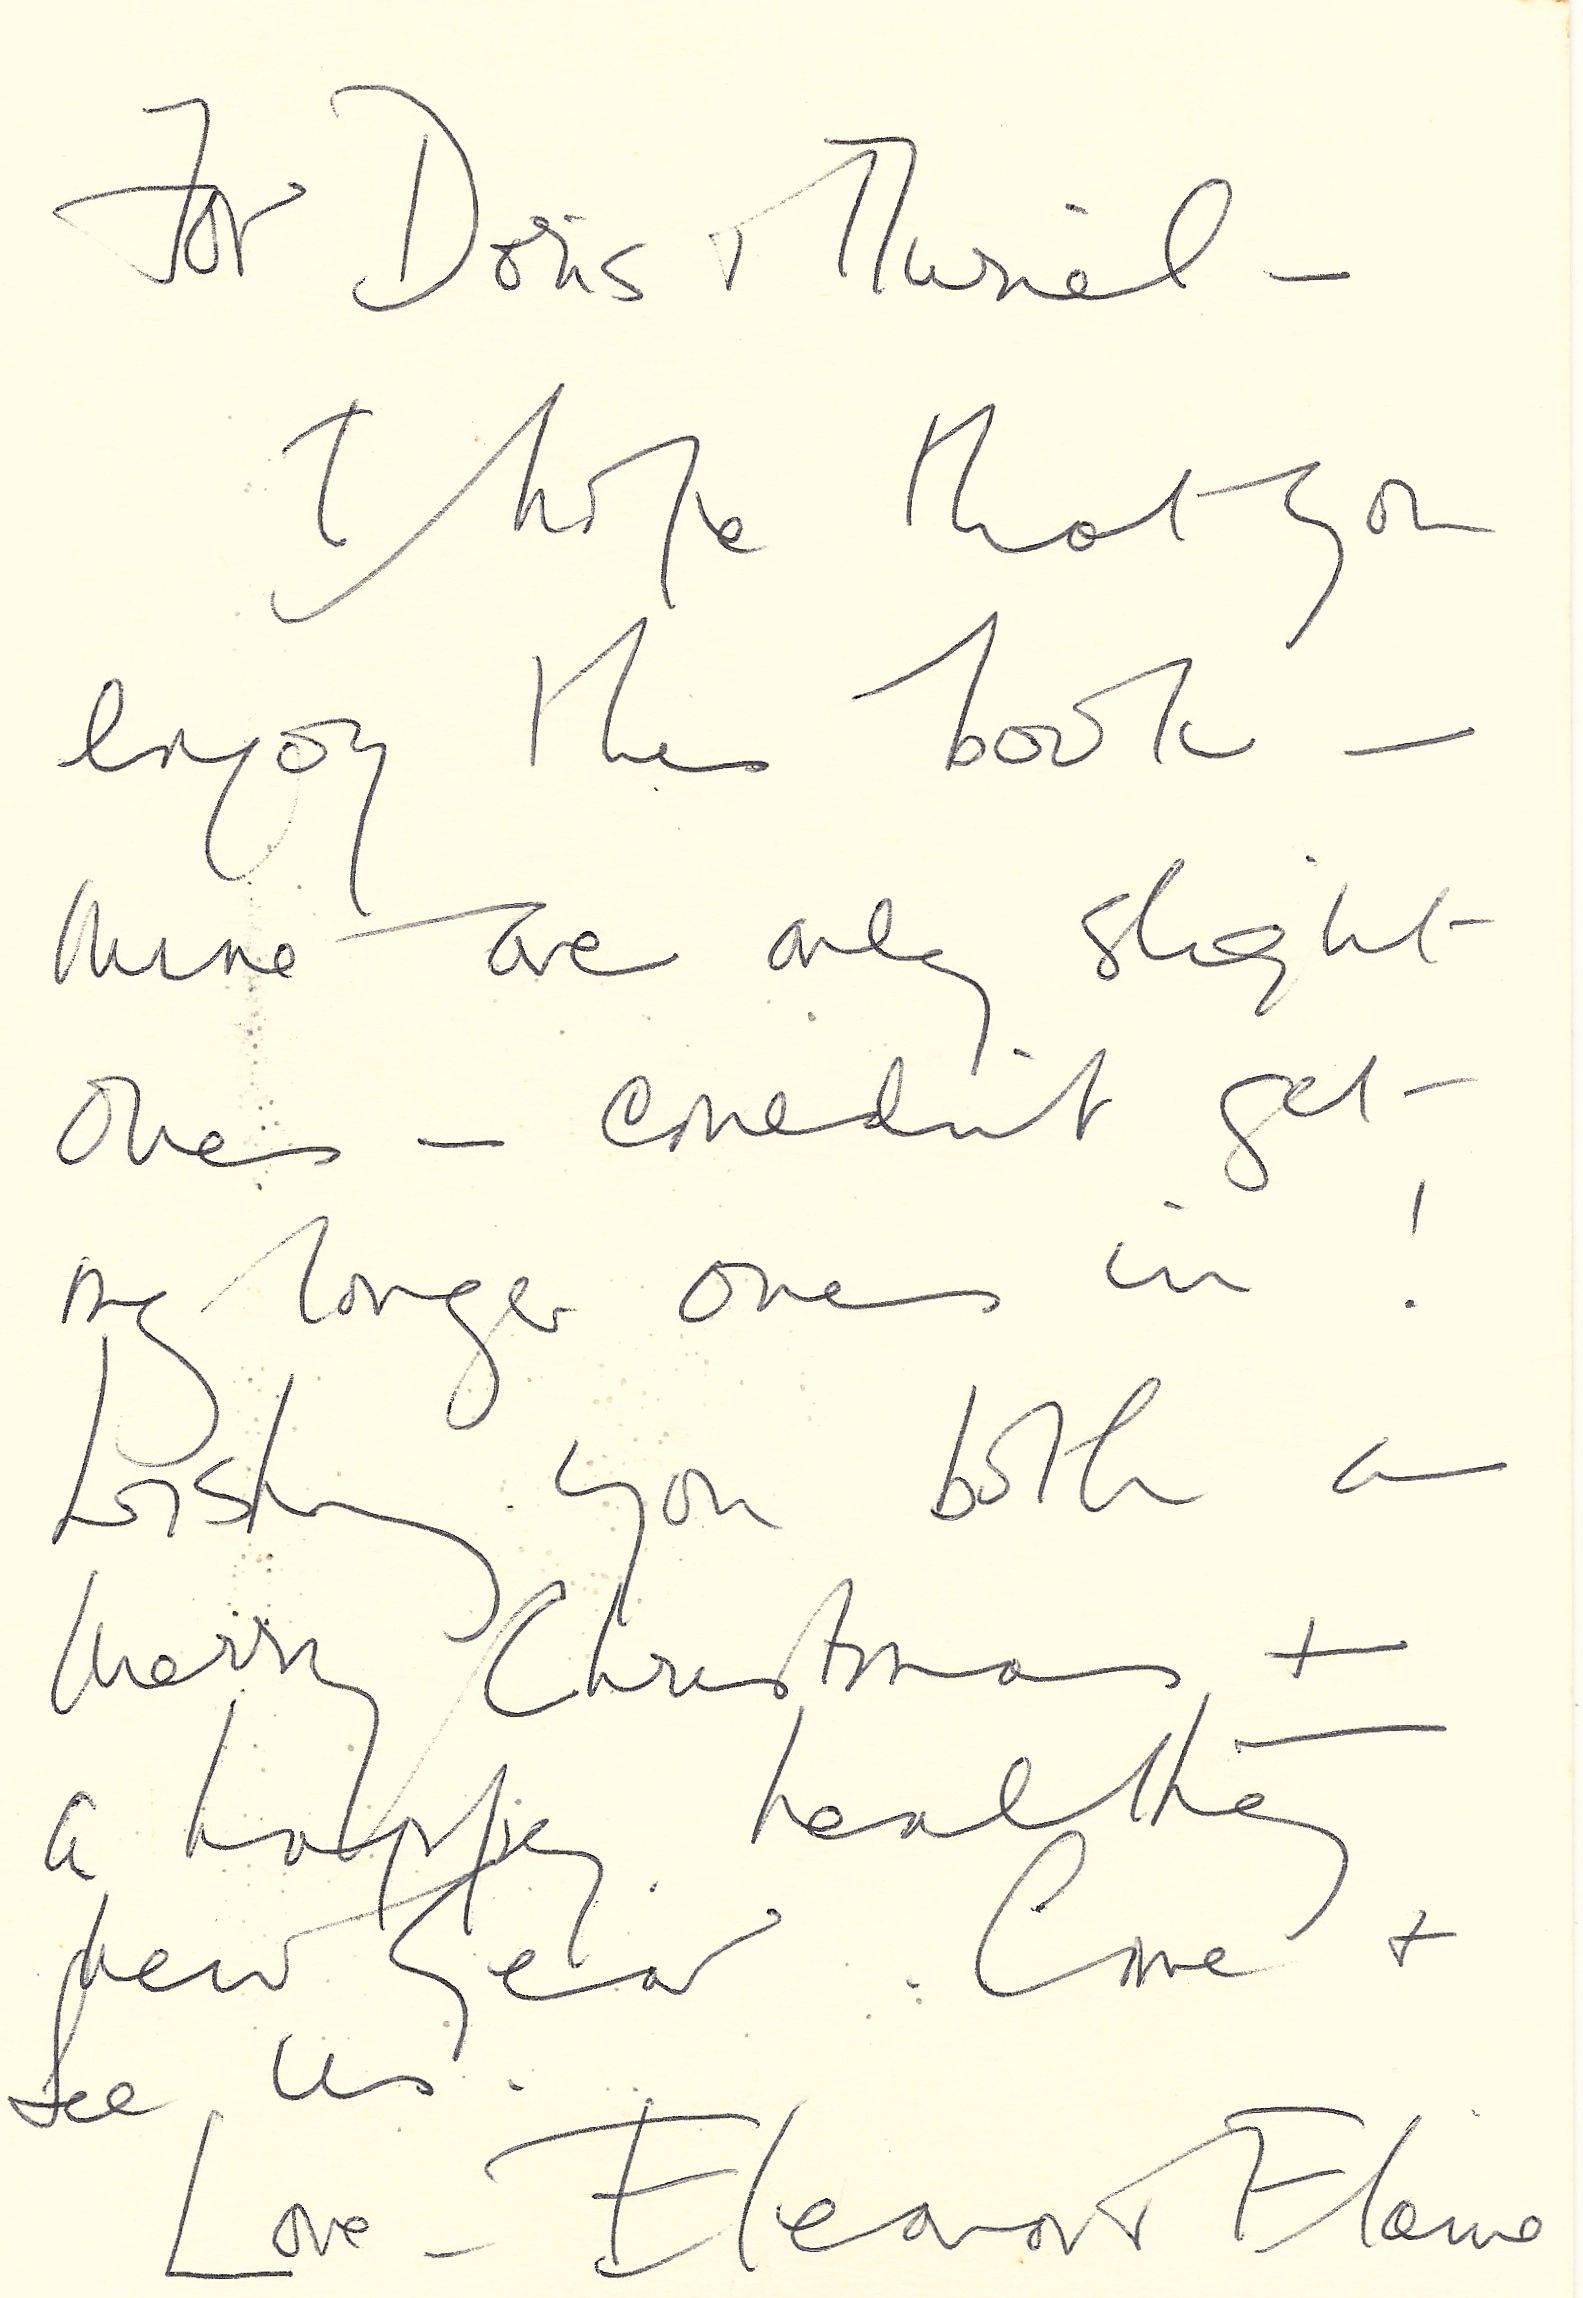 For Doris + Muriel –
I hope that you
enjoy this book –
Mine are only slight
ones – couldn't get
my longer ones in!
Wishing you both a
Merry Christmas +
a happy healthy
New Year. Come +
see us.
Love – Eleanor + Elaine